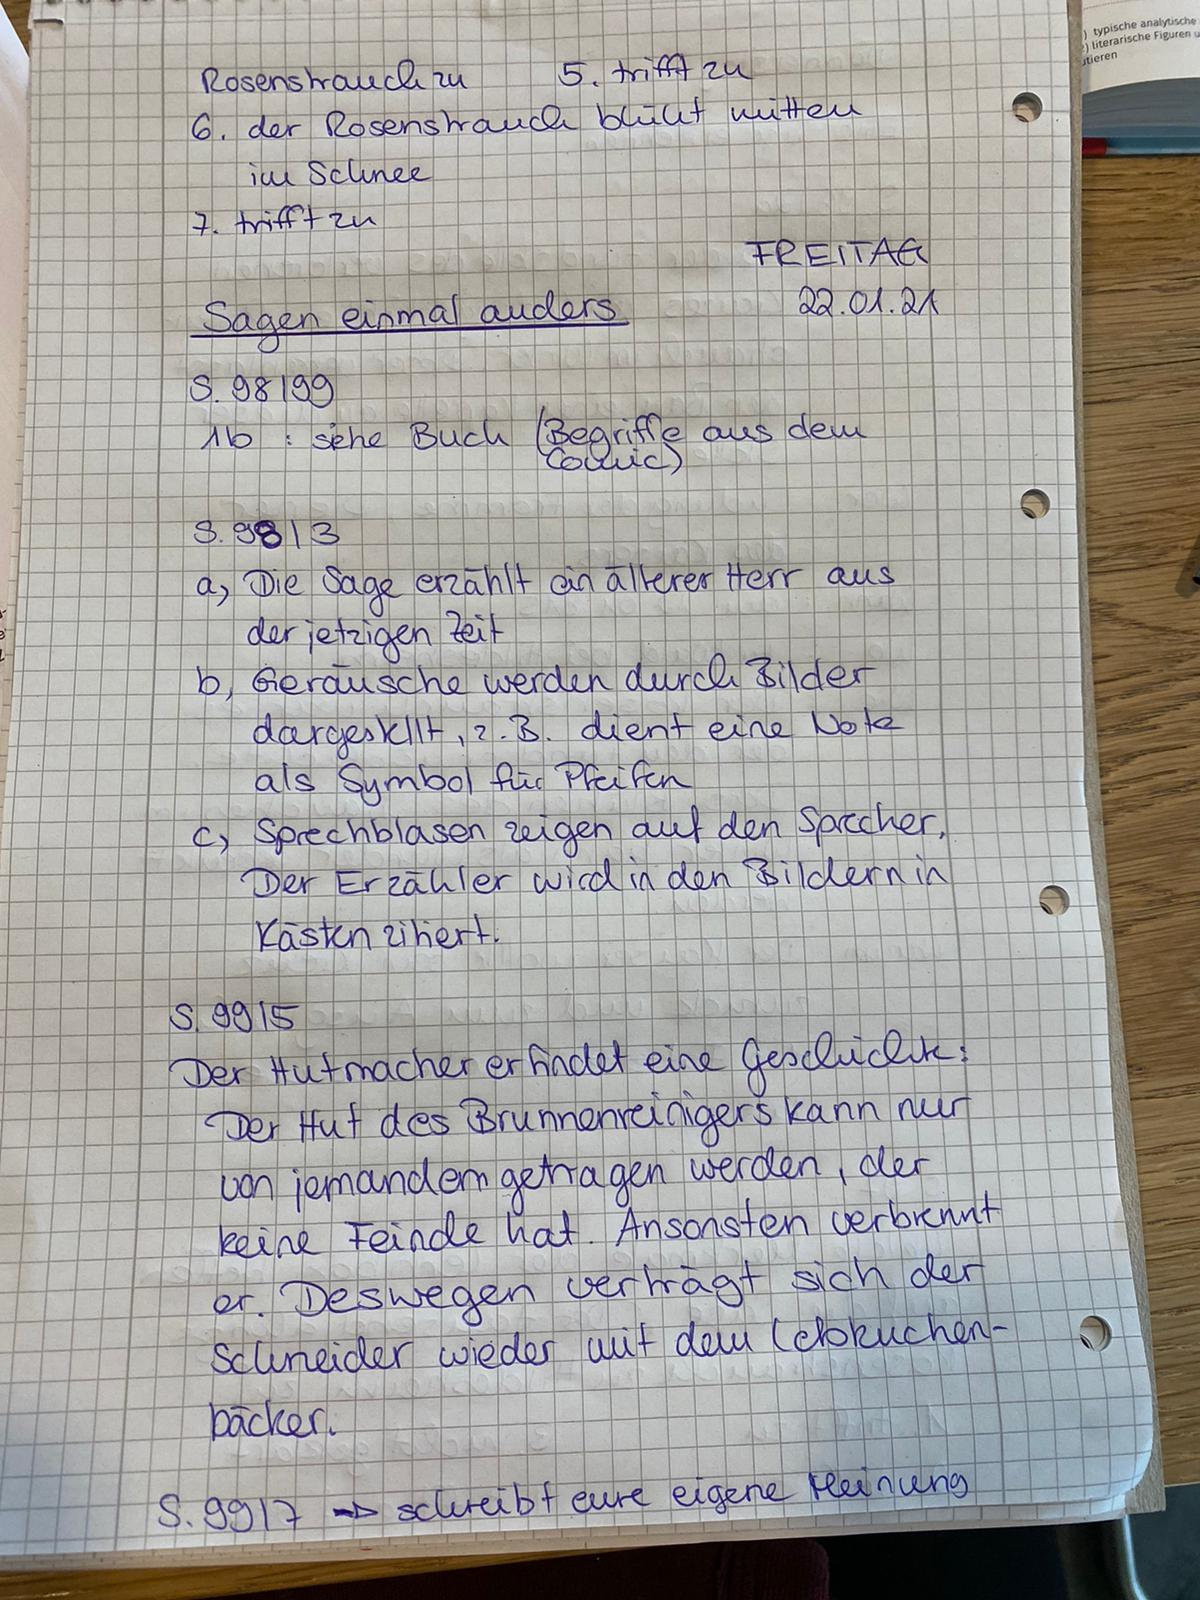 ) typische analytische
) literarische Figuren u
utieren
Rosenstrauch zu 5. trifft zu
6. der Rosenstrauch blüht mitten
im Schnee
7. trifft zu
FREITAG
Sagen einmal anders 22.01.21
S. 98/99
1b : siehe Buch (Begriffe aus dem
Comic)
S. 98/3
a) Die Sage erzählt ein älterer Herr aus
der jetzigen Zeit
b) Geräusche werden durch Bilder
dargestellt, z.B. dient eine Note
als Symbol für Pfeifen
c) Sprechblasen zeigen auf den Sprecher,
Der Erzähler wird in den Bildern in
Kästen zitiert.
S. 99/5
Der Hutmacher erfindet eine Geschichte:
Der Hut des Brunnenreinigers kann nur
von jemandem getragen werden, der
keine Feinde hat. Ansonsten verbrennt
er. Deswegen verträgt sich der
Schneider wieder mit dem Lebkuchen-
bäcker.
S. 99/7 => schreibt eure eigene Meinung